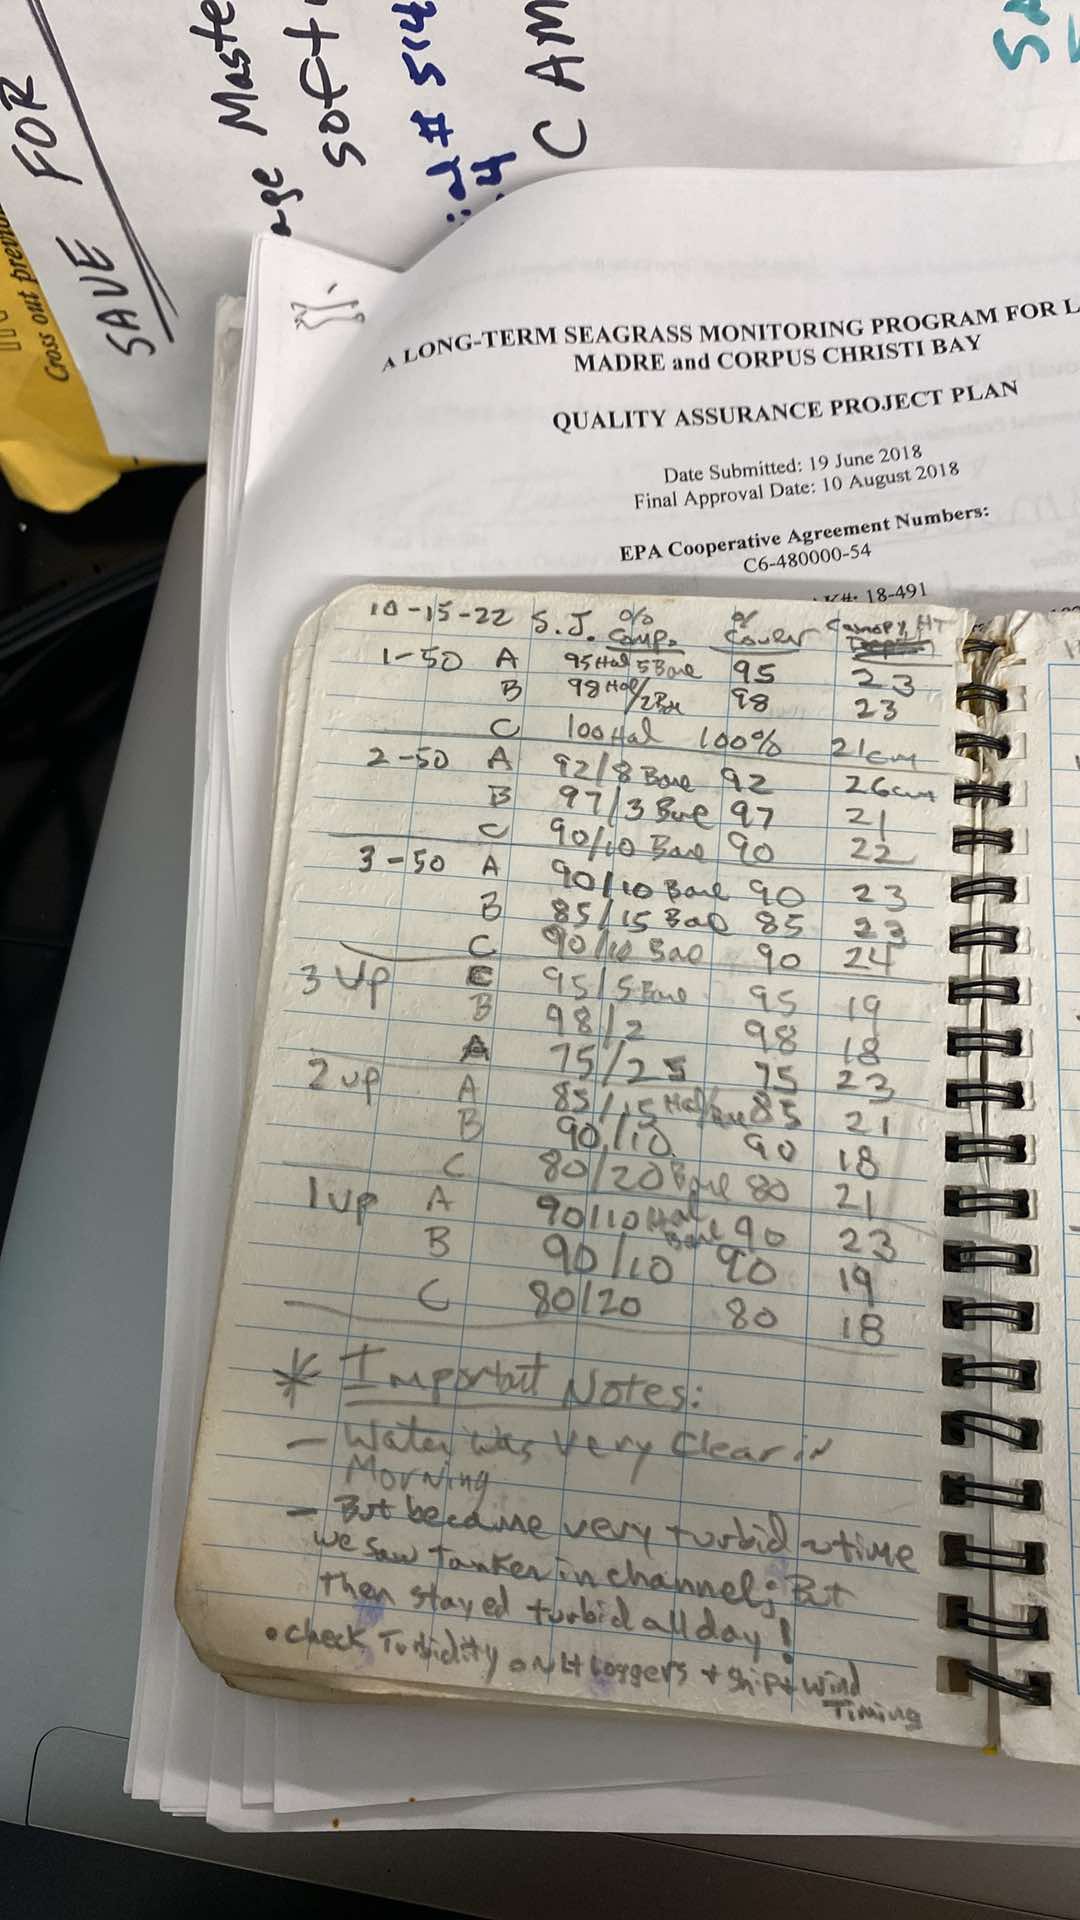 Cross out previou
SAVE FOR
age Maste
soft
# 514
C AM
A LONG-TERM SEAGRASS MONITORING PROGRAM FOR L
MADRE and CORPUS CHRISTI BAY
QUALITY ASSURANCE PROJECT PLAN
Date Submitted: 19 June 2018
Final Approval Date: 10 August 2018
EPA Cooperative Agreement Numbers:
C6-480000-54
18-491
10-15-22 S.J. % Comp. % Cover Canopy HT
1-50 A 95 Hal 5 Bare 95 23
B 98 Hal/2 Bare 98 23
C 100 Hal 100% 21cm
2-50 A 92/8 Bare 92 26cm
B 97/3 Bare 97 21
C 90/10 Bare 90 22
3-50 A 90/10 Bare 90 23
B 85/15 Bare 85 23
C 90/10 Bare 90 24
3 up C 95/5 Bare 95 19
B 98/2 98 18
A 75/25 75 23
2 up A 85/15 Hal/Bare 85 21
B 90/10 90 18
C 80/20 Bare 80 21
1 up A 90/10 Hal Bare 90 23
B 90/10 90 19
C 80/20 80 18
* Important Notes:
- Water was very clear in
Morning
- But became very turbid ~time
we saw tanker in channel; But
then stayed turbid all day!
• check Turbidity on Lt Loggers + ship + wind
Timing